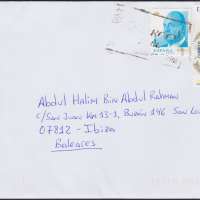 ESPAÑA
Abdul Halim Bin Abdul Rahman
C/San Juan Km 13-1, Buzón 146 San Lo
07812 - Ibiza
Baleares